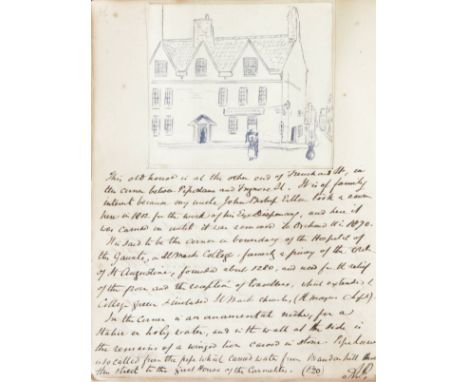 This old house is at the other end of Trenchard St, on
the corner between Pipe Lane and Frogmore St. It is of family
interest because my uncle John Bishop Estlin took a room
here in 1812 for the work of his Eye Dispensary, and here it
was carried on until it was removed to Orchard St in 1890.
It is said to be the corner or boundary of the Hospital of
the Gaunts, or St Mark College, formerly a priory of the order
of St Augustine, founded about 1220, and used for the relief
of the poor and the reception of travellers, which extended to
College green & included St Mark church, (the mayors chapel).
In the corner is an ornamental niche, for a
statue or holy water, and in the wall at the side is
the remains of a winged lion carved in stone. Pipe Lane
is so called from the pipe which carried water from Brandon hill thro
this street to the great House of the Carmelites. (P20)